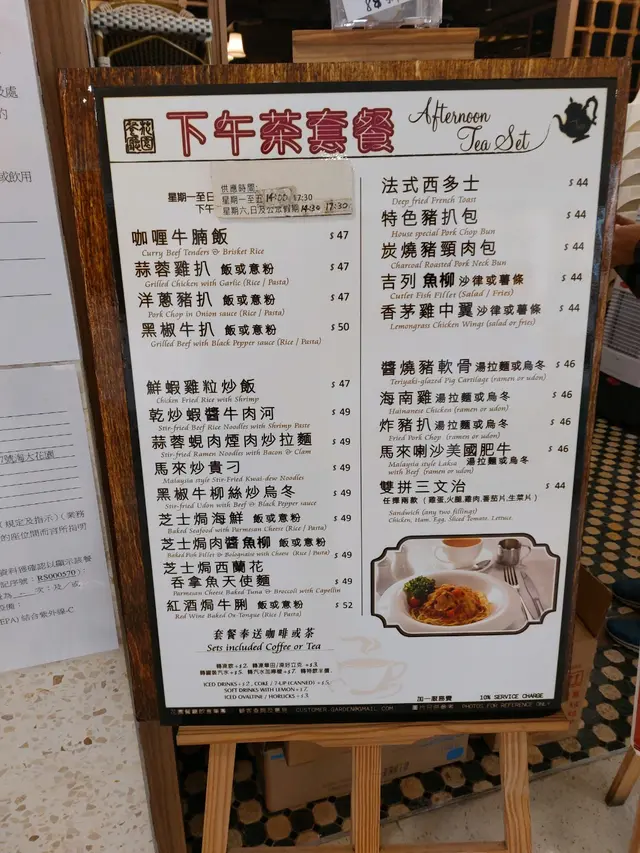 下午茶套餐
Afternoon
Tea Set
供應時間:
星期一至日
星期一至五 14:00 17:30
下午
星期六,日及公眾假期 14:30 17:30
咖喱牛腩飯 $47
Curry Beef Tenders & Brisket Rice
蒜蓉雞扒 飯或意粉 $47
Grilled Chicken with Garlic (Rice / Pasta)
洋蔥豬扒 飯或意粉 $47
Pork Chop in Onion sauce (Rice / Pasta)
黑椒牛扒 飯或意粉 $50
Grilled Beef with Black Pepper sauce (Rice / Pasta)
鮮蝦雞粒炒飯 $47
Chicken Fried Rice with Shrimp
乾炒蝦醬牛肉河 $49
Stir-fried Beef Rice Noodles with Shrimp Paste
蒜蓉蜆肉煙肉炒拉麵 $49
Stir-fried Ramen Noodles with Bacon & Clam
馬來炒貴刁 $49
Malaysia style Stir-Fried Kwai-dew Noodles
黑椒牛柳絲炒烏冬 $49
Stir-fried Udon with Beef & Black Pepper sauce
芝士焗海鮮 飯或意粉 $49
Baked Seafood with Parmesan Cheese (Rice / Pasta)
芝士焗肉醬魚柳 飯或意粉 $49
Baked Fish Fillet & Bolognaise with Cheese (Rice / Pasta)
芝士焗西蘭花
吞拿魚天使麵 $49
Parmesan Cheese Baked Tuna & Broccoli with Capellin
紅酒焗牛脷 飯或意粉 $52
Red Wine Baked Ox-Tongue (Rice / Pasta)
套餐奉送咖啡或茶
Sets included Coffee or Tea
ICED DRINKS +$2, COKE / 7-UP (CANNED) +$5,
SOFT DRINKS WITH LEMON +$7,
ICED OVALTINE / HORLICKS +$3.
法式西多士 $44
Deep fried French Toast
特色豬扒包 $44
House special Pork Chop Bun
炭燒豬頸肉包 $44
Charcoal Roasted Pork Neck Bun
吉列魚柳 沙律或薯條 $44
Cutlet Fish Fillet (Salad / Fries)
香茅雞中翼 沙律或薯條 $44
Lemongrass Chicken Wings (salad or fries)
醬燒豬軟骨 湯拉麵或烏冬 $46
Teriyaki-glazed Pig Cartilage (ramen or udon)
海南雞 湯拉麵或烏冬 $46
Hainanese Chicken (ramen or udon)
炸豬扒 湯拉麵或烏冬 $46
Fried Pork Chop (ramen or udon)
馬來喇沙美國肥牛 $46
Malaysia style Laksa 湯拉麵或烏冬
with Beef (ramen or udon)
雙拼三文治 $44
任擇兩款 (雞蛋,火腿,雞肉,蕃茄片,生菜片)
Sandwich (any two fillings)
Chicken, Ham, Egg, Sliced Tomato, Lettuce.
加一服務費 10% SERVICE CHARGE
CUSTOMER.GARDEN@GMAIL.COM
PHOTOS FOR REFERENCE ONLY